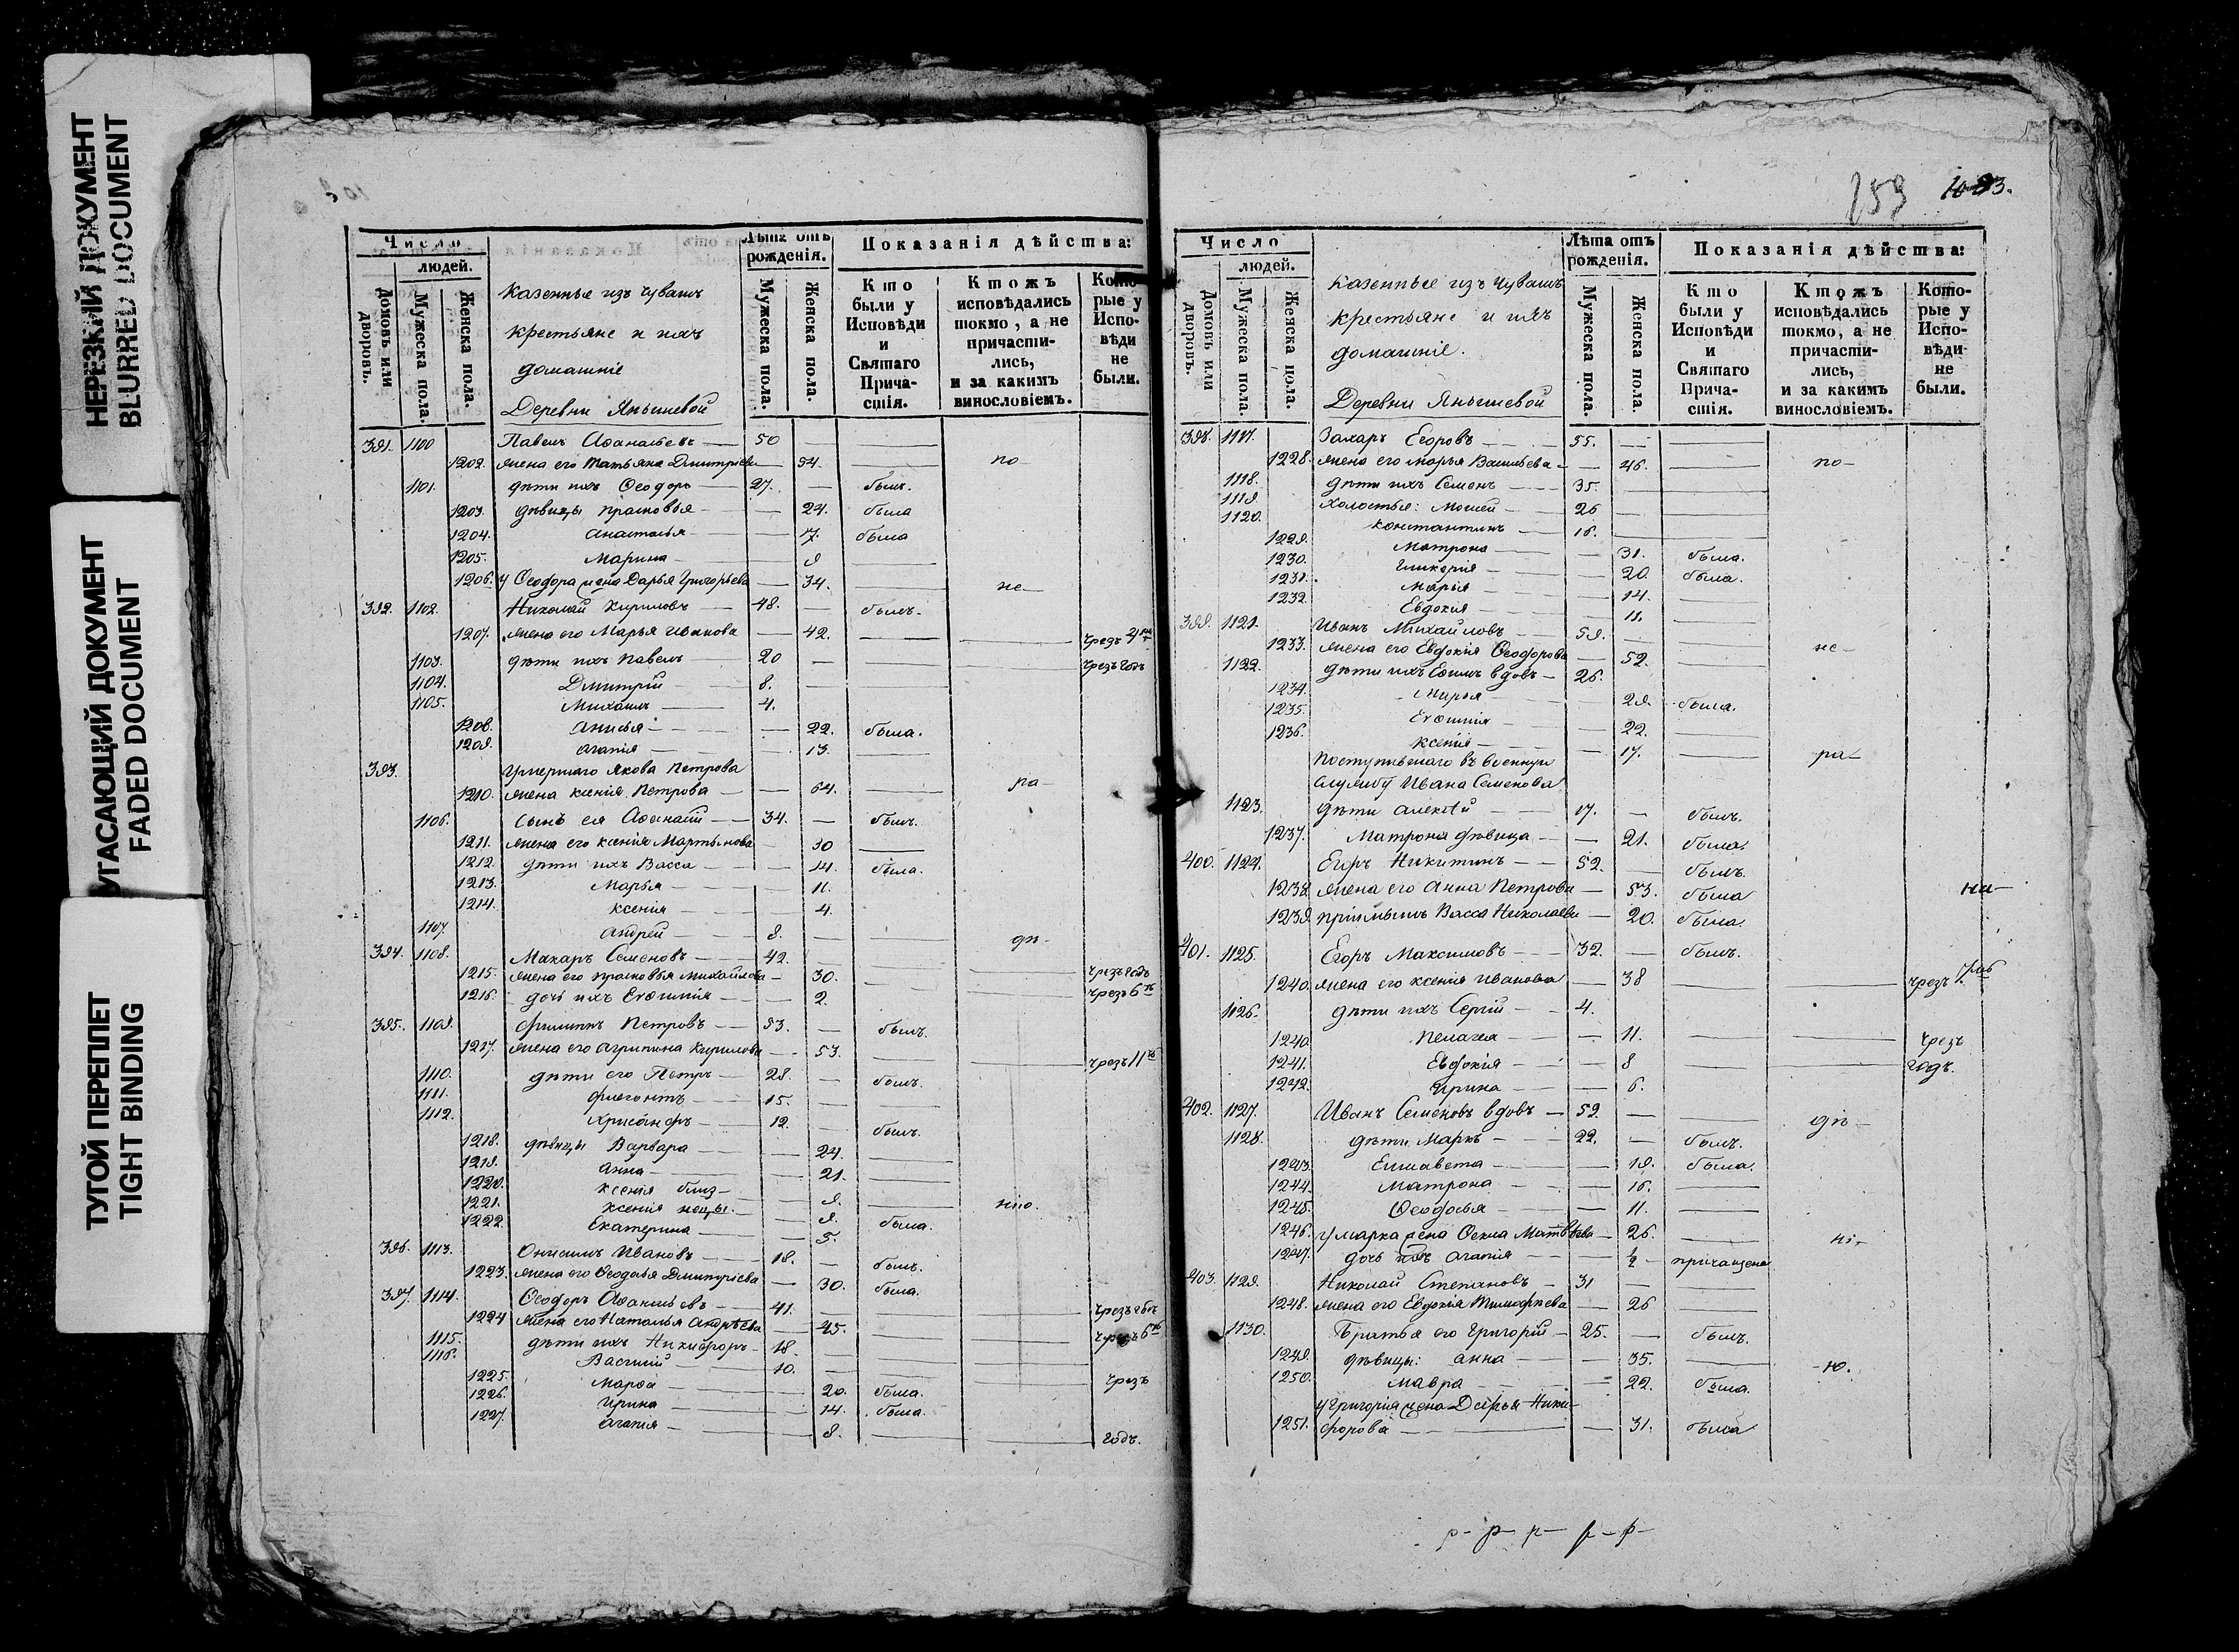 НЕРЕЗКИЙ ДОКУМЕНТ
BLURRED DOCUMENT
УГАСАЮЩИЙ ДОКУМЕНТ
FADED DOCUMENT
ТУГОЙ ПЕРЕПЛЕТ
TIGHT BINDING
Число
людей.
Домовъ или дворовъ.
Мужеска пола.
Женска пола.
Казенные изъ Чувашъ
крестьяне и ихъ
домашніе
Деревни Янышевой
Лѣта отъ рожденія.
Мужеска пола.
Женска пола.
Показанія дѣйства:
Кто были у Исповѣди и Святаго Причастія.
Ктожъ исповѣдались токмо, а не причастились, и за какимъ винословіемъ.
Которые у Исповѣди не были.
391. 1100 Павелъ Аѳанасьевъ 50
1202. жена его Татьяна Дмитріева 54. по-
1101. дѣти ихъ Ѳеодоръ 27. былъ.
1203. дѣвицы Прасковья 24. была
1204. Анастасья 17. была
1205. Марина 9
1206. у Ѳеодора жена Дарья Григорьева 34. не-
392. 1102. Николай Кириловъ 48. былъ.
1207. жена его Марья Иванова 42. чрезъ 4
1103. дѣти ихъ Павелъ 20 чрезъ годъ
1104. Дмитрій 8.
1105. Михаилъ 4.
1208. Анисья 22. была.
1209. Агапія 13.
393. Умершаго Якова Петрова
1210. жена Ксенія Петрова 64. ра-
1106. сынъ ея Аѳанасій 34. былъ.
1211. жена его Ксенія Мартынова 30
1212. дѣти ихъ Васса 14. была.
1213. Марья 11.
1214. Ксенія 4.
1107. Андрей 8.
394. 1108. Макаръ Семеновъ 42. дѣ-
1215. жена его Прасковья Михайлова 30. чрезъ годъ
1216. дочь ихъ Евѳимія 2. чрезъ 6
395. 1109. Филиппъ Петровъ 53. былъ.
1217. жена его Агрипина Кирилова 53. чрезъ 11
1110. дѣти его Петръ 28. былъ.
1111. Флегонтъ 15.
1112. Хрисанфъ 12. былъ.
1218. дѣвицы Варвара 24.
1219. Анна 21.
1220. Ксенія близ-
1221. Ксенія нецы. 9. нію.
1222. Екатерина 5. была.
396. 1113. Онисимъ Ивановъ 18. былъ.
1223. жена его Ѳеодосья Дмитріева 30. была.
397. 1114. Ѳеодоръ Аѳанасьевъ 41. чрезъ годъ
1224 жена его Наталья Андрѣева 45. чрезъ 6
1115. дѣти ихъ Никифоръ 18.
1116. Василій 10. чрезъ
1225. Марѳа 20. была.
1226. Ирина 14. была.
1227. Агапія 8. годъ.
253
1083.
Число
людей.
Домовъ или дворовъ.
Мужеска пола.
Женска пола.
Казенные изъ Чувашъ
крестьяне и ихъ
домашніе.
Деревни Янышевой
Лѣта отъ рожденія.
Мужеска пола.
Женска пола.
Показанія дѣйства:
Кто были у Исповѣди и Святаго Причастія.
Ктожъ исповѣдались токмо, а не причастились, и за какимъ винословіемъ.
Которые у Исповѣди не были.
398. 1117. Захаръ Егоровъ 55.
1228. жена его Марья Васильева 46. по-
1118. дѣти ихъ Семенъ 35.
1119. Холостые: Мосей 26
1120. Константинъ 16.
1229. Матрона 31. была.
1230. Гликерія 20. была.
1231. Марья 14.
1232. Евдокія 11.
399. 1121. Иванъ Михайловъ 59.
1233. жена его Евдокія Ѳеодорова 52. не-
1122. дѣти ихъ Ефимъ вдовъ 26.
1234. Марья 29. была.
1235. Евѳимія 22.
1236. Ксенія 17. ра-
Поступившаго въ военную
службу Ивана Семенова
1123. дѣти Алексѣй 17. былъ.
1237. Матрона дѣвица 21. была.
400. 1124. Егоръ Никитинъ 52. былъ.
1238. жена его Анна Петрова 53. была
1239. пріимышъ Васса Николаева 20. была.
401. 1125. Егоръ Максимовъ 32. былъ.
1240. жена его Ксенія Иванова 38 чрезъ 7
1126. дѣти ихъ Сергій 4.
1240. Пелагея 11. чрезъ
1241. Евдокія 8 годъ.
1242. Ирина 6.
402. 1127. Иванъ Семеновъ вдовъ 52. дѣ-
1128. дѣти Маркъ 22. былъ.
1243. Елисавета 19. была.
1244. Матрона 16.
1245. Ѳеодосья 11.
1246. у Марка жена Ѳекла Матвѣева 26. ні-
1247. дочь ихъ Агапія ½ причащена
403. 1129. Николай Степановъ 31
1248. жена его Евдокія Тимофѣева 26
1130. Братья его Григорій 25. былъ.
1249. дѣвицы: Анна 35. -ю.
1250. Мавра 22. была.
у Григорія жена Дарья Ники-
1251. форова 31. была
р- р- р- р- р-